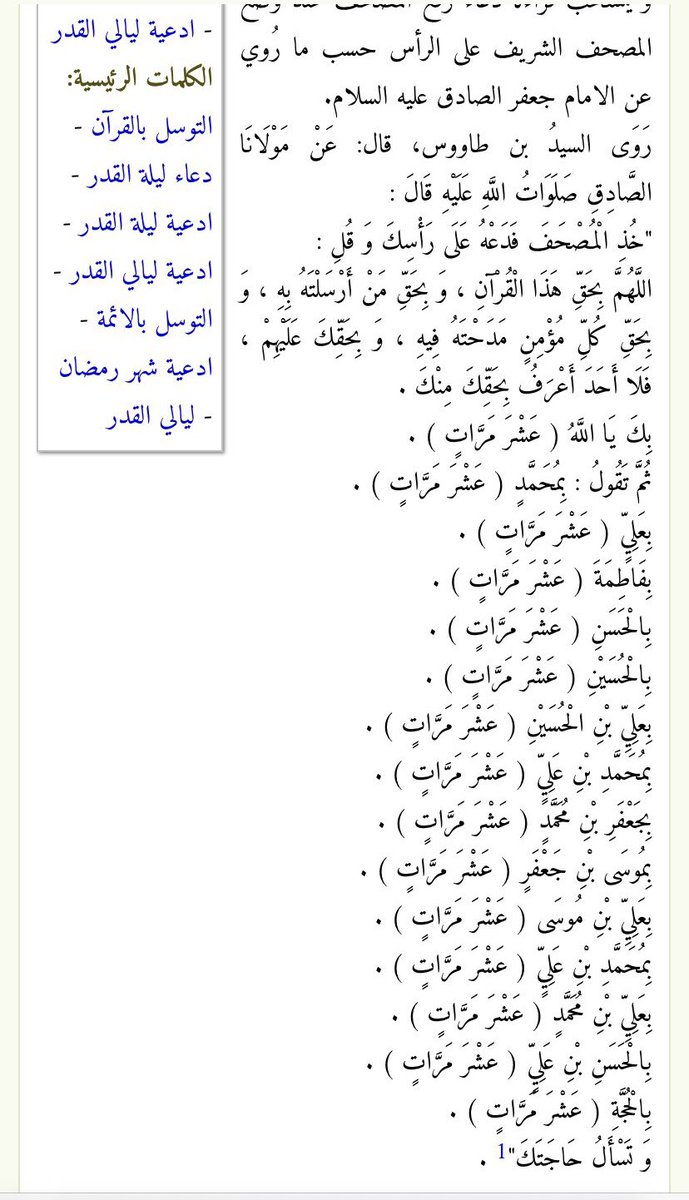 و يستحب قراءة دعاء رفع المصاحف عند وضع
المصحف الشريف على الرأس حسب ما رُوي
عن الامام جعفر الصادق عليه السلام.
رَوَى السيدُ بن طاووس، قال: عَنْ مَوْلَانَا
الصَّادِقِ صَلَوَاتُ اللَّهِ عَلَيْهِ قَالَ :
"خُذِ الْمُصْحَفَ فَدَعْهُ عَلَى رَأْسِكَ وَ قُلِ :
اللَّهُمَّ بِحَقِّ هَذَا الْقُرْآنِ ، وَ بِحَقِّ مَنْ أَرْسَلْتَهُ بِهِ ، وَ
بِحَقِّ كُلِّ مُؤْمِنٍ مَدَحْتَهُ فِيهِ ، وَ بِحَقِّكَ عَلَيْهِمْ ،
فَلَا أَحَدَ أَعْرَفُ بِحَقِّكَ مِنْكَ .
بِكَ يَا اللَّهُ ( عَشْرَ مَرَّاتٍ ) .
ثُمَّ تَقُولُ : بِمُحَمَّدٍ ( عَشْرَ مَرَّاتٍ ) .
بِعَلِيٍّ ( عَشْرَ مَرَّاتٍ ) .
بِفَاطِمَةَ ( عَشْرَ مَرَّاتٍ ) .
بِالْحَسَنِ ( عَشْرَ مَرَّاتٍ ) .
بِالْحُسَيْنِ ( عَشْرَ مَرَّاتٍ ) .
بِعَلِيِّ بْنِ الْحُسَيْنِ ( عَشْرَ مَرَّاتٍ ) .
بِمُحَمَّدِ بْنِ عَلِيٍّ ( عَشْرَ مَرَّاتٍ ) .
بِجَعْفَرِ بْنِ مُحَمَّدٍ ( عَشْرَ مَرَّاتٍ ) .
بِمُوسَى بْنِ جَعْفَرٍ ( عَشْرَ مَرَّاتٍ ) .
بِعَلِيِّ بْنِ مُوسَى ( عَشْرَ مَرَّاتٍ ) .
بِمُحَمَّدِ بْنِ عَلِيٍّ ( عَشْرَ مَرَّاتٍ ) .
بِعَلِيِّ بْنِ مُحَمَّدٍ ( عَشْرَ مَرَّاتٍ ) .
بِالْحَسَنِ بْنِ عَلِيٍّ ( عَشْرَ مَرَّاتٍ ) .
بِالْحُجَّةِ ( عَشْرَ مَرَّاتٍ ) .
وَ تَسْأَلُ حَاجَتَكَ"1 .
- ادعية ليالي القدر
الكلمات الرئيسية:
التوسل بالقرآن -
دعاء ليلة القدر -
ادعية ليلة القدر -
ادعية ليالي القدر -
التوسل بالائمة -
ادعية شهر رمضان
- ليالي القدر